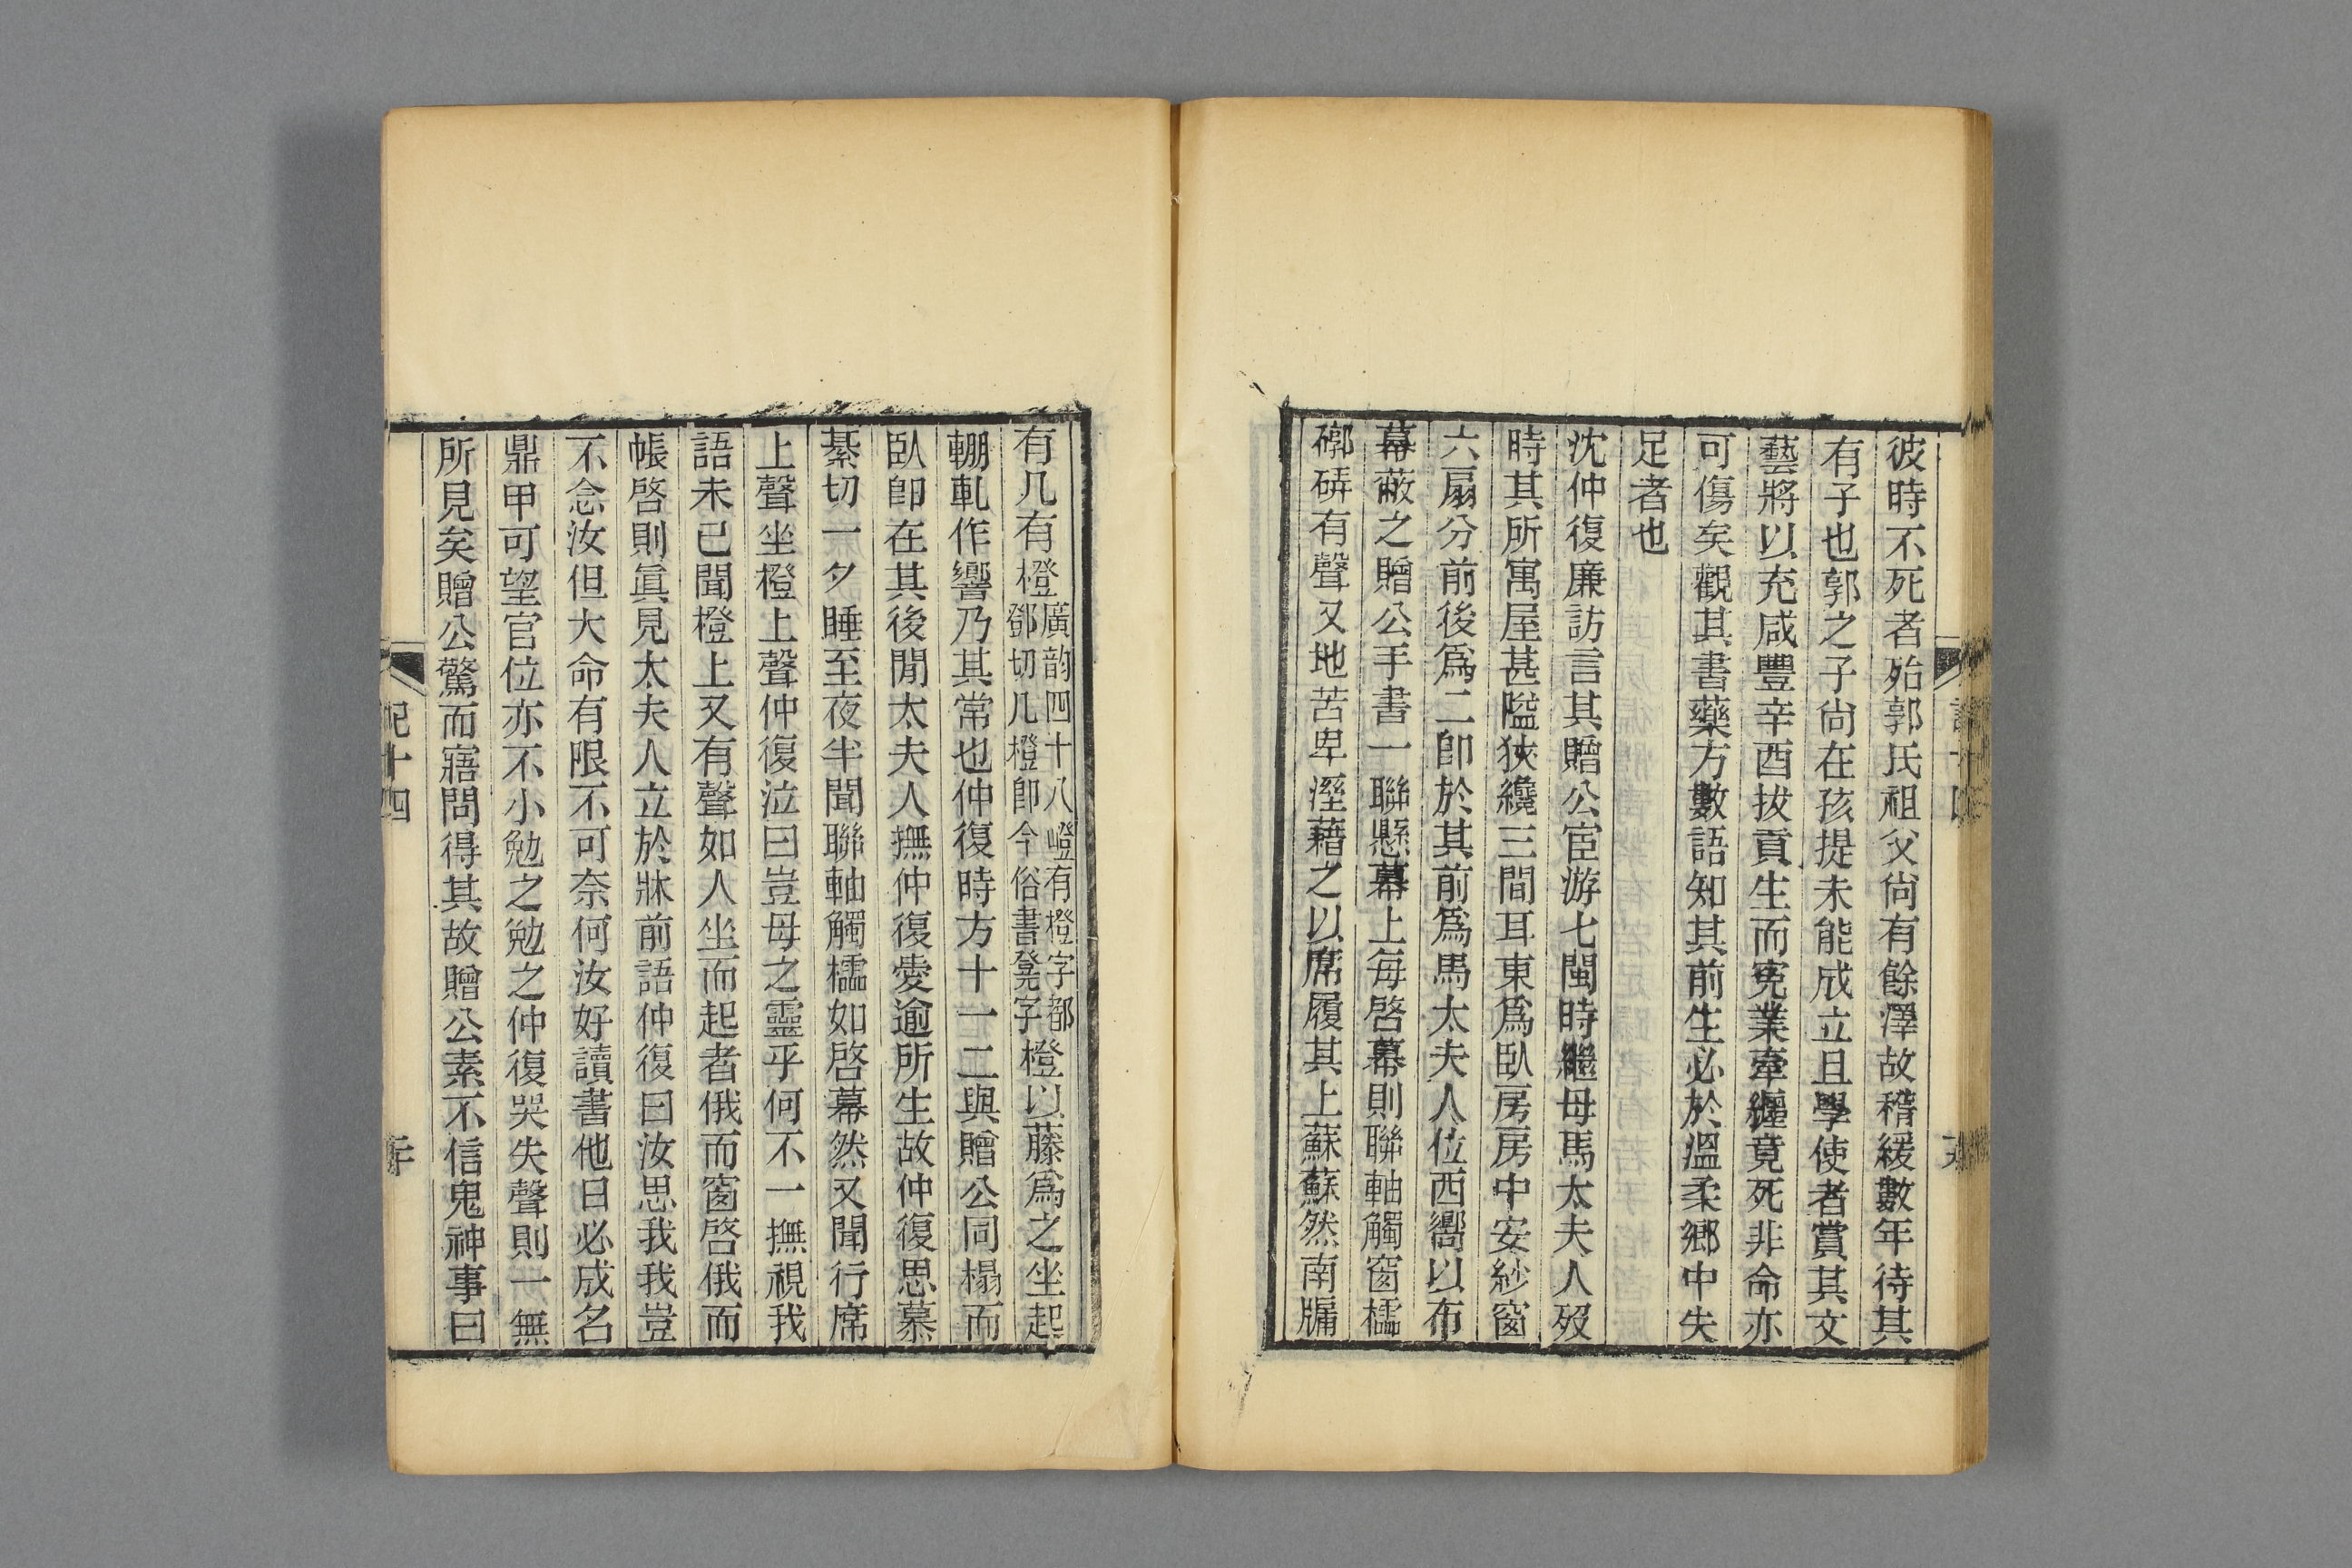 彼時不死者殆郭氏祖父尙有餘澤故稽緩數年待其
有子也郭之子尙在孩提未能成立且學使者賞其文
藝將以充咸豐辛酉拔貢生而寃業牽纏竟死非命亦
可傷矣觀其書藥方數語知其前生必於溫柔鄉中失
足者也
沈仲復廉訪言其贈公宦游七閩時繼母馬太夫人歿
時其所寓屋甚隘狹纔三間耳東爲臥房房中安紗窗
六扇分前後爲二卽於其前爲馬太夫人位西嚮以布
幕蔽之贈公手書一聯懸幕上每啓幕則聯軸觸窗櫺
磞硑有聲又地苦卑溼藉之以席履其上蘇蘇然南牖
有几有橙廣韵四十八嶝有橙字都鄧切几橙卽今俗書凳字橙以藤爲之坐起
輣軋作響乃其常也仲復時方十一二與贈公同榻而
臥卽在其後閒太夫人撫仲復愛逾所生故仲復思慕
綦切一夕睡至夜半聞聯軸觸櫺如啓幕然又聞行席
上聲坐橙上聲仲復泣曰豈母之靈乎何不一撫視我
語未已聞橙上又有聲如人坐而起者俄而窗啓俄而
帳啓則眞見太夫人立於牀前語仲復曰汝思我我豈
不念汝但大命有限不可奈何汝好讀書他日必成名
鼎甲可望官位亦不小勉之勉之仲復哭失聲則一無
所見矣贈公驚而寤問得其故贈公素不信鬼神事曰
記十四